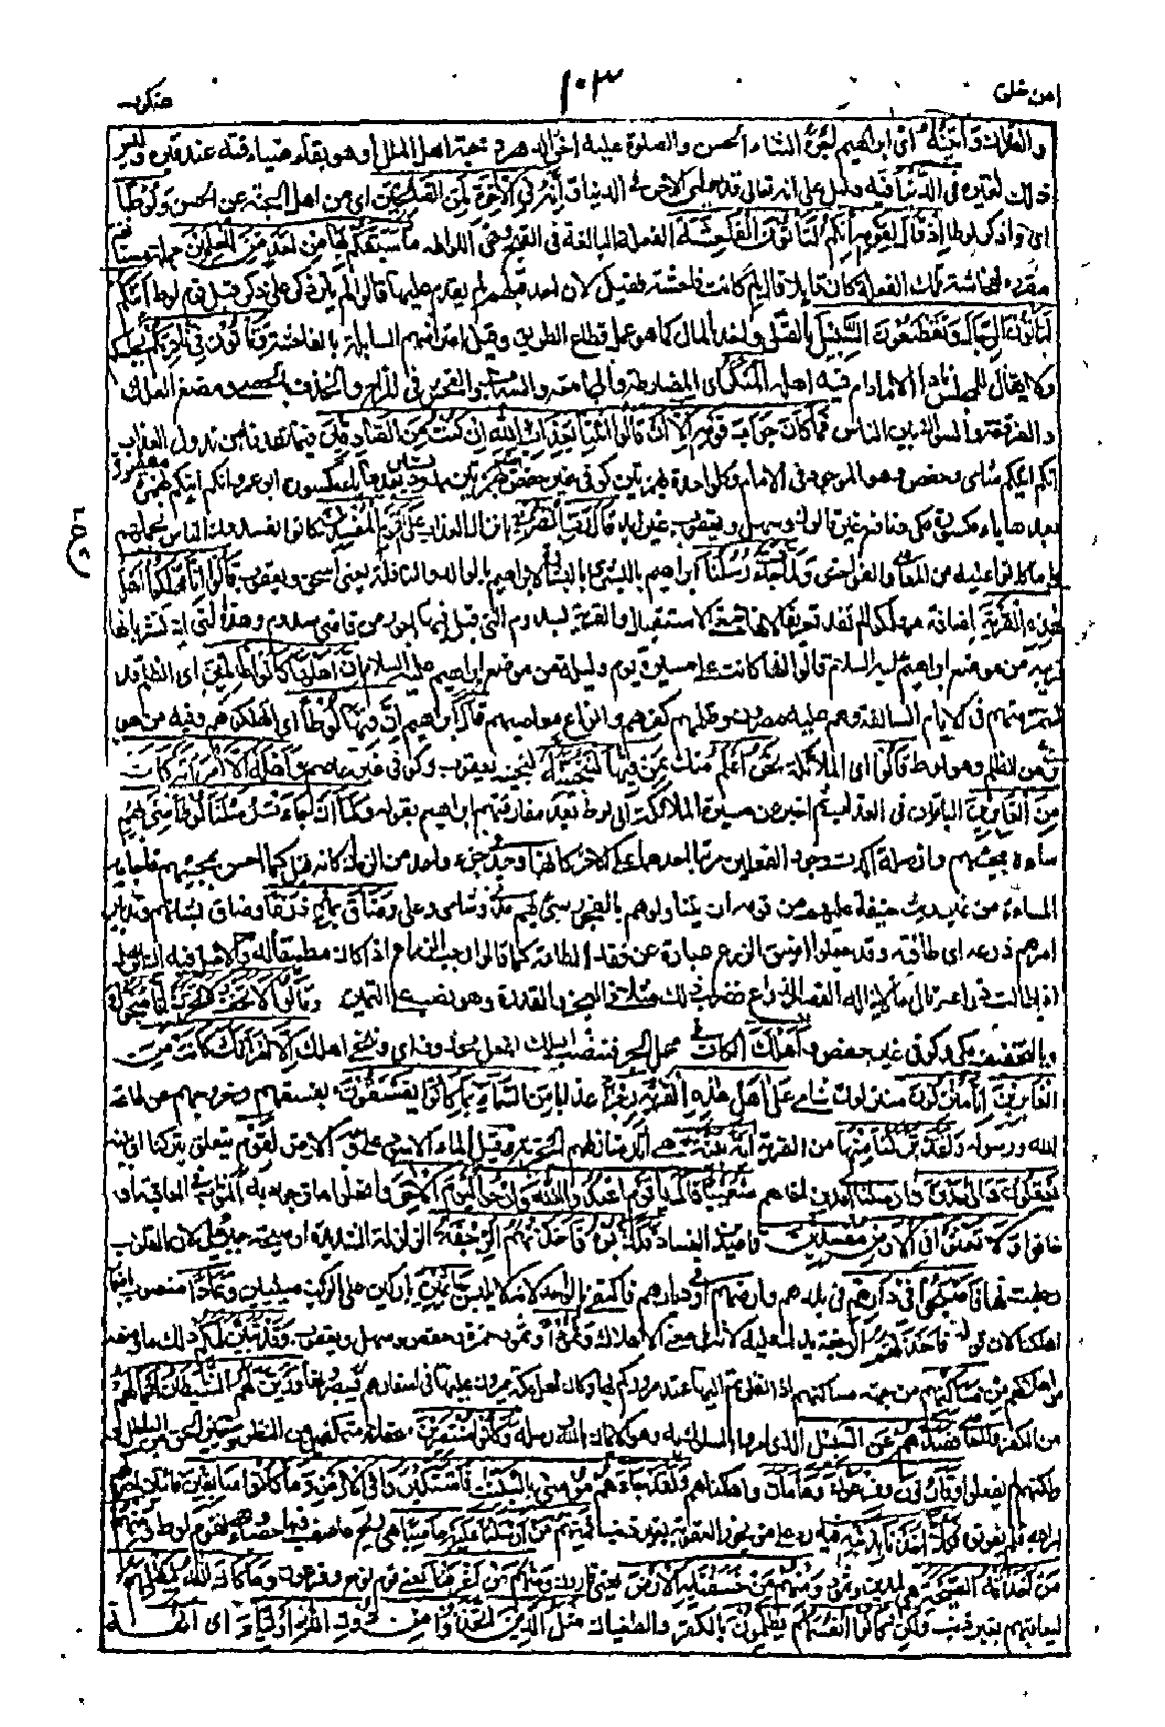 امن خلق ١٠٣ عنكبوت
أى ابراهيم الثناء الحسن والصلوة عليه آخر الدهر
ذلك فى الدنيا فيه دليل على انه تعالى وَإِنَّهُ فِي الْآخِرَةِ لَمِنَ الصَّالِحِينَ اى من اهل الجنة عن الحسن وَلُوطًا
اى واذكر لوطا إِذْ قَالَ لِقَوْمِهِ أَئِنَّكُمْ لَتَأْتُونَ الْفَاحِشَةَ الفعلة البالغة فى القبح وهى اللواطة مَا سَبَقَكُمْ بِهَا مِنْ أَحَدٍ مِنَ الْعَالَمِينَ جملة مستانفة
مقررة لفاحشة تلك الفعلة كان قائلا قال لم كانت فاحشة فقيل لان احدا قبلهم لم يقدم عليها قالوا لم ذكر على ذكر قبل قوم لوط أَئِنَّكُمْ
لَتَأْتُونَ الرِّجَالَ وَتَقْطَعُونَ السَّبِيلَ بالقتل واخذ المال كما هو عمل قطاع الطريق وقيل اعتراضهم السابلة بالفاحشة وَتَأْتُونَ فِي نَادِيكُمُ
ولا يقال للمجلس ناد الا ما دام فيه اهله الْمُنْكَرَ اى المضارطة والمجامعة والسباب والفحش فى المزاح والحذف بالحصى ومضغ العلك
والفرقعة والسواك بين الناس فَمَا كَانَ جَوَابَ قَوْمِهِ إِلَّا أَنْ قَالُوا ائْتِنَا بِعَذَابِ اللَّهِ إِنْ كُنْتَ مِنَ الصَّادِقِينَ فيما تعدنا من نزول العذاب
انكم ائنكم شامى وحفص وهو الموجود فى الامام وكل واحدة بهمزتين كوفى غير حفص
قَالَ رَبِّ انْصُرْنِي بانزال العذاب عَلَى الْقَوْمِ الْمُفْسِدِينَ كانوا يفسدون الناس بحملهم
على ما كانوا عليه من المعاصى والفواحش وَلَمَّا جَاءَتْ رُسُلُنَا إِبْرَاهِيمَ بِالْبُشْرَى بالبشارة لابراهيم بالولد والنافلة يعنى اسحق ويعقوب قَالُوا إِنَّا مُهْلِكُو أَهْلِ
هَذِهِ الْقَرْيَةِ اضافة مهلكوا لم تفد تعريفا لانها بمعنى الاستقبال والقرية سدوم التى قيل فيها اجور من قاضى سدوم وهذه القرية تشعر بانها
قريبة من موضع ابراهيم عليه السلام قالوا انها كانت على مسيرة يوم وليلة من موضع ابراهيم عليه السلام إِنَّ أَهْلَهَا كَانُوا ظَالِمِينَ اى الظلم قد
استمر منهم فى الايام السالفة وهم عليه مصرون وظلمهم كفرهم وانواع معاصيهم قَالَ ابراهيم إِنَّ فِيهَا لُوطًا اى اتهلكونهم وفيه من هو
برئ من الظلم وهو لوط قَالُوا اى الملائكة نَحْنُ أَعْلَمُ منك بِمَنْ فِيهَا لَنُنَجِّيَنَّهُ لننجينه يعقوب وكوفى غير عاصم وَأَهْلَهُ إِلَّا امْرَأَتَهُ كَانَتْ
مِنَ الْغَابِرِينَ الباقين فى العذاب ثم اخبر عن مسير الملائكة الى لوط بعد مفارقتهم ابراهيم بقوله وَلَمَّا أَنْ جَاءَتْ رُسُلُنَا لُوطًا سِيءَ بِهِمْ
ساءه مجيئهم وان صلة اكدت وجود الفعلين مرتبا احدهما على الآخر كانهما وجدا فى جزء واحد من الزمان كانه قيل كما احس بمجيئهم فاجاءته
المساءة من غير ريث خيفة عليهم من قومه ان يتناولوهم بالفجور سئ بهم مدنى وشامى وعلى وَضَاقَ بِهِمْ ذَرْعًا وضاق بشانهم وبتدبير
امرهم ذرعه اى طاقته وقد جعلوا ضيق الذرع عبارة عن فقد الطاقة كما قالوا رحب الذراع اذا كان مطيقا له والاصل فيه ان الرجل
اذا طالت ذراعه نال ما لا يناله القصير الذراع فضرب ذلك مثلا فى العجز والقدرة وهو نصب على التمييز وَقَالُوا لَا تَخَفْ وَلَا تَحْزَنْ إِنَّا مُنَجُّوكَ
وبالتخفيف مكى وكوفى غير حفص وَأَهْلَكَ الكاف فى محل الجر ونصب اهلك بفعل محذوف اى وننجى اهلك إِلَّا امْرَأَتَكَ كَانَتْ مِنَ
الْغَابِرِينَ إِنَّا مُنْزِلُونَ منزلون شامى عَلَى أَهْلِ هَذِهِ الْقَرْيَةِ رِجْزًا عذابا مِنَ السَّمَاءِ بِمَا كَانُوا يَفْسُقُونَ بفسقهم وخروجهم عن طاعة
الله ورسوله وَلَقَدْ تَرَكْنَا مِنْهَا من القرية آيَةً بَيِّنَةً هى آثار منازلهم الخربة وقيل الماء الاسود على وجه الارض لِقَوْمٍ يتعلق بتركنا او ببينة
يَعْقِلُونَ وَإِلَى مَدْيَنَ وارسلنا الى مدين أَخَاهُمْ شُعَيْبًا فَقَالَ يَا قَوْمِ اعْبُدُوا اللَّهَ وَارْجُوا الْيَوْمَ الْآخِرَ وافعلوا ما ترجون به الثواب فى العاقبة او
خافوه وَلَا تَعْثَوْا فِي الْأَرْضِ مُفْسِدِينَ قاصدين الفساد فَكَذَّبُوهُ فَأَخَذَتْهُمُ الرَّجْفَةُ الزلزلة الشديدة او صيحة جبريل لان القلوب
رجفت بها فَأَصْبَحُوا فِي دَارِهِمْ فى بلدهم وارضهم او فى ديارهم فاكتفى بالواحد لانه لا يلبس جَاثِمِينَ باركين على الركب ميتين وَعَادًا منصوب باضمار
اهلكنا لان قوله فاخذتهم الرجفة يدل عليه لانه فى معنى الاهلاك وَثَمُودَ حمزة وحفص وسهل ويعقوب وَقَدْ تَبَيَّنَ لَكُمْ ذلك ما وصفه
من اهلاكهم مِنْ مَسَاكِنِهِمْ من جهة مساكنهم اذا نظرتم اليها عند مروركم بها وكان اهل مكة يمرون عليها فى اسفارهم فيبصرونها وَزَيَّنَ لَهُمُ الشَّيْطَانُ أَعْمَالَهُمْ
من الكفر والمعاصى فَصَدَّهُمْ عَنِ السَّبِيلِ الذى امروا بسلوكه وهو الايمان بالله ورسله وَكَانُوا مُسْتَبْصِرِينَ عقلاء متمكنين من النظر وتمييز الحق من الباطل
ولكنهم لم يفعلوا وَقَارُونَ وَفِرْعَوْنَ وَهَامَانَ واهلكناهم وَلَقَدْ جَاءَهُمْ مُوسَى بِالْبَيِّنَاتِ فَاسْتَكْبَرُوا فِي الْأَرْضِ وَمَا كَانُوا سَابِقِينَ فائتين
امر الله فلم يفوتوه فَكُلًّا أَخَذْنَا بِذَنْبِهِ فيه رد على من يجوز العقوبة بغير ذنب فَمِنْهُمْ مَنْ أَرْسَلْنَا عَلَيْهِ حَاصِبًا هى ريح عاصف فيها حصباء وهى لقوم لوط وَمِنْهُمْ
مَنْ أَخَذَتْهُ الصَّيْحَةُ هى لمدين وثمود وَمِنْهُمْ مَنْ خَسَفْنَا بِهِ الْأَرْضَ يعنى قارون وَمِنْهُمْ مَنْ أَغْرَقْنَا يعنى قوم نوح وفرعون وَمَا كَانَ اللَّهُ لِيَظْلِمَهُمْ
ليعاقبهم بغير ذنب وَلَكِنْ كَانُوا أَنْفُسَهُمْ يَظْلِمُونَ بالكفر والطغيان مَثَلُ الَّذِينَ اتَّخَذُوا مِنْ دُونِ اللَّهِ أَوْلِيَاءَ اى آلهة